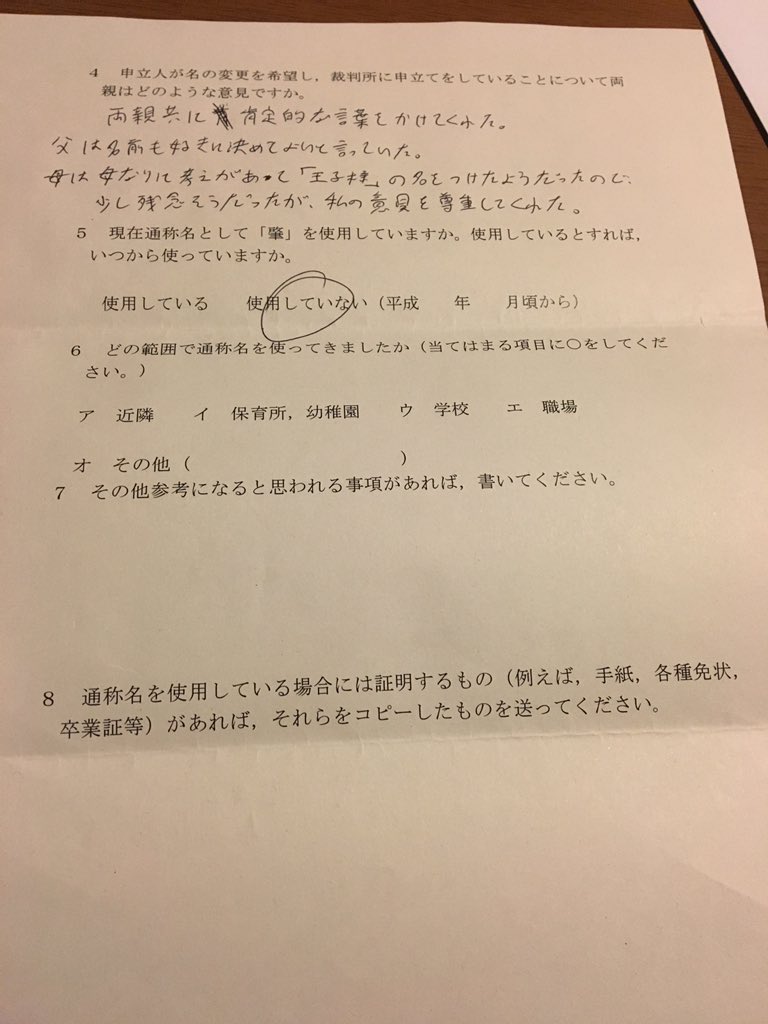 4 申立人が名の変更を希望し，裁判所に申立てをしていることについて両
親はどのような意見ですか。
両親共に 肯定的な言葉をかけてくれた。
父は名前も好きに決めてよいと言っていた。
母は母なりに考えがあって「王子様」の名をつけたようだったので、
少し残念そうだったが、私の意見を尊重してくれた。
5 現在通称名として「肇」を使用していますか。使用しているとすれば，
いつから使っていますか。
使用している 使用していない（平成 年 月頃から）
6 どの範囲で通称名を使ってきましたか（当てはまる項目に〇をしてくだ
さい。）
ア 近隣 イ 保育所，幼稚園 ウ 学校 エ 職場
オ その他（ ）
7 その他参考になると思われる事項があれば，書いてください。
8 通称名を使用している場合には証明するもの（例えば，手紙，各種免状，
卒業証等）があれば，それらをコピーしたものを送ってください。